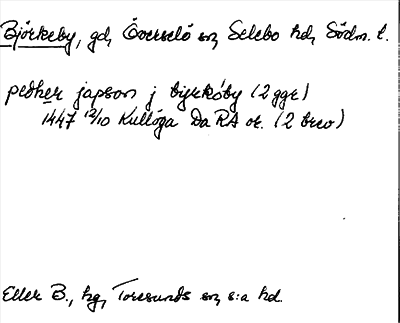 Björkeby, gd, Överselö sn, Selebo hd, Södm. l.
pedher japson j byrkøby (2 ggr)
1447 12/10 Kullöga Da RA or. (2 brev)
Eller B., hg, Toresunds sn, s:a hd.